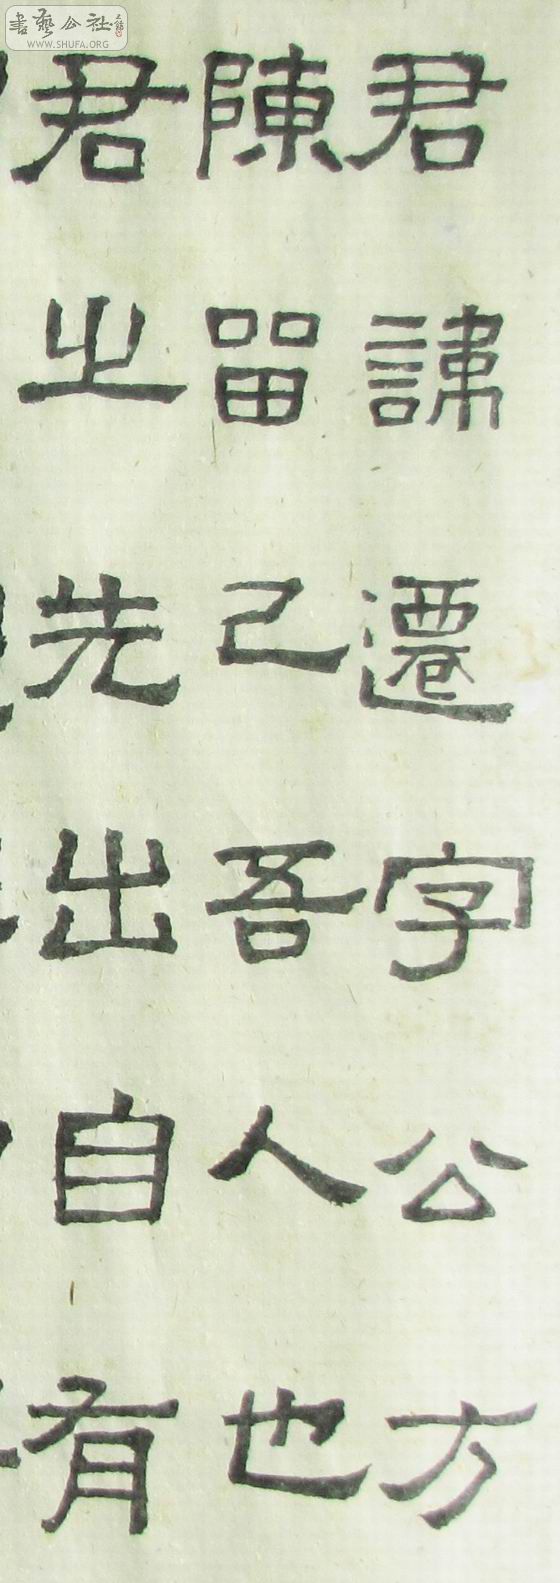 君諱遷字公方
陳留己吾人也
君之先出自有
書藝公社
WWW.SHUFA.ORG